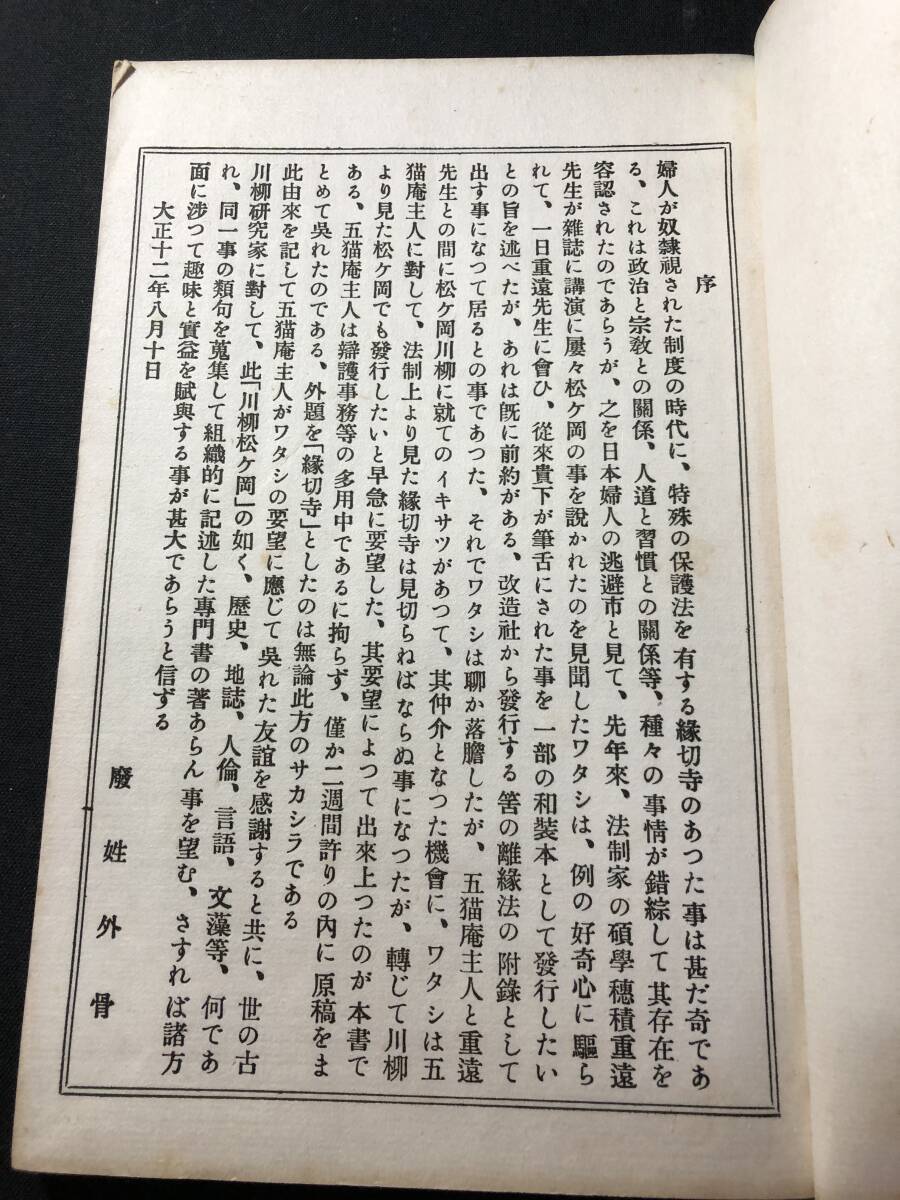 序
婦人が奴隷視された制度の時代に、特殊の保護法を有する緣切寺のあつた事は甚だ奇であ
る、これは政治と宗敎との關係、人道と習慣との關係等、種々の事情が錯綜して其存在を
容認されたのであらうが、之を日本婦人の逃避市と見て、先年來、法制家の碩學穗積重遠
先生が雜誌に講演に屢々松ケ岡の事を說かれたのを見聞したワタシは、例の好奇心に驅ら
れて、一日重遠先生に會ひ、從來貴下が筆舌にされた事を一部の和裝本として發行したい
との旨を述べたが、あれは旣に前約がある、改造社から發行する筈の離緣法の附錄として
出す事になつて居るとの事であつた、それでワタシは聊か落膽したが、五猫庵主人と重遠
先生との間に松ケ岡川柳に就てのイキサツがあつて、其仲介となつた機會に、ワタシは五
猫庵主人に對して、法制上より見た緣切寺は見切らねばならぬ事になつたが、轉じて川柳
より見た松ケ岡でも發行したいと早急に要望した、其要望によつて出來上つたのが本書で
ある、五猫庵主人は辯護事務等の多用中であるに拘らず、僅か二週間許りの內に原稿をま
とめて吳れたのである、外題を「緣切寺」としたのは無論此方のサカシラである
此由來を記して五猫庵主人がワタシの要望に應じて吳れた友誼を感謝すると共に、世の古
川柳硏究家に對して、此「川柳松ケ岡」の如く、歷史、地誌、人倫、言語、文藻等、何であ
れ、同一事の類句を蒐集して組織的に記述した專門書の著あらん事を望む、さすれば諸方
面に涉つて趣味と實益を賦與する事が甚大であらうと信ずる
大正十二年八月十日
廢姓外骨